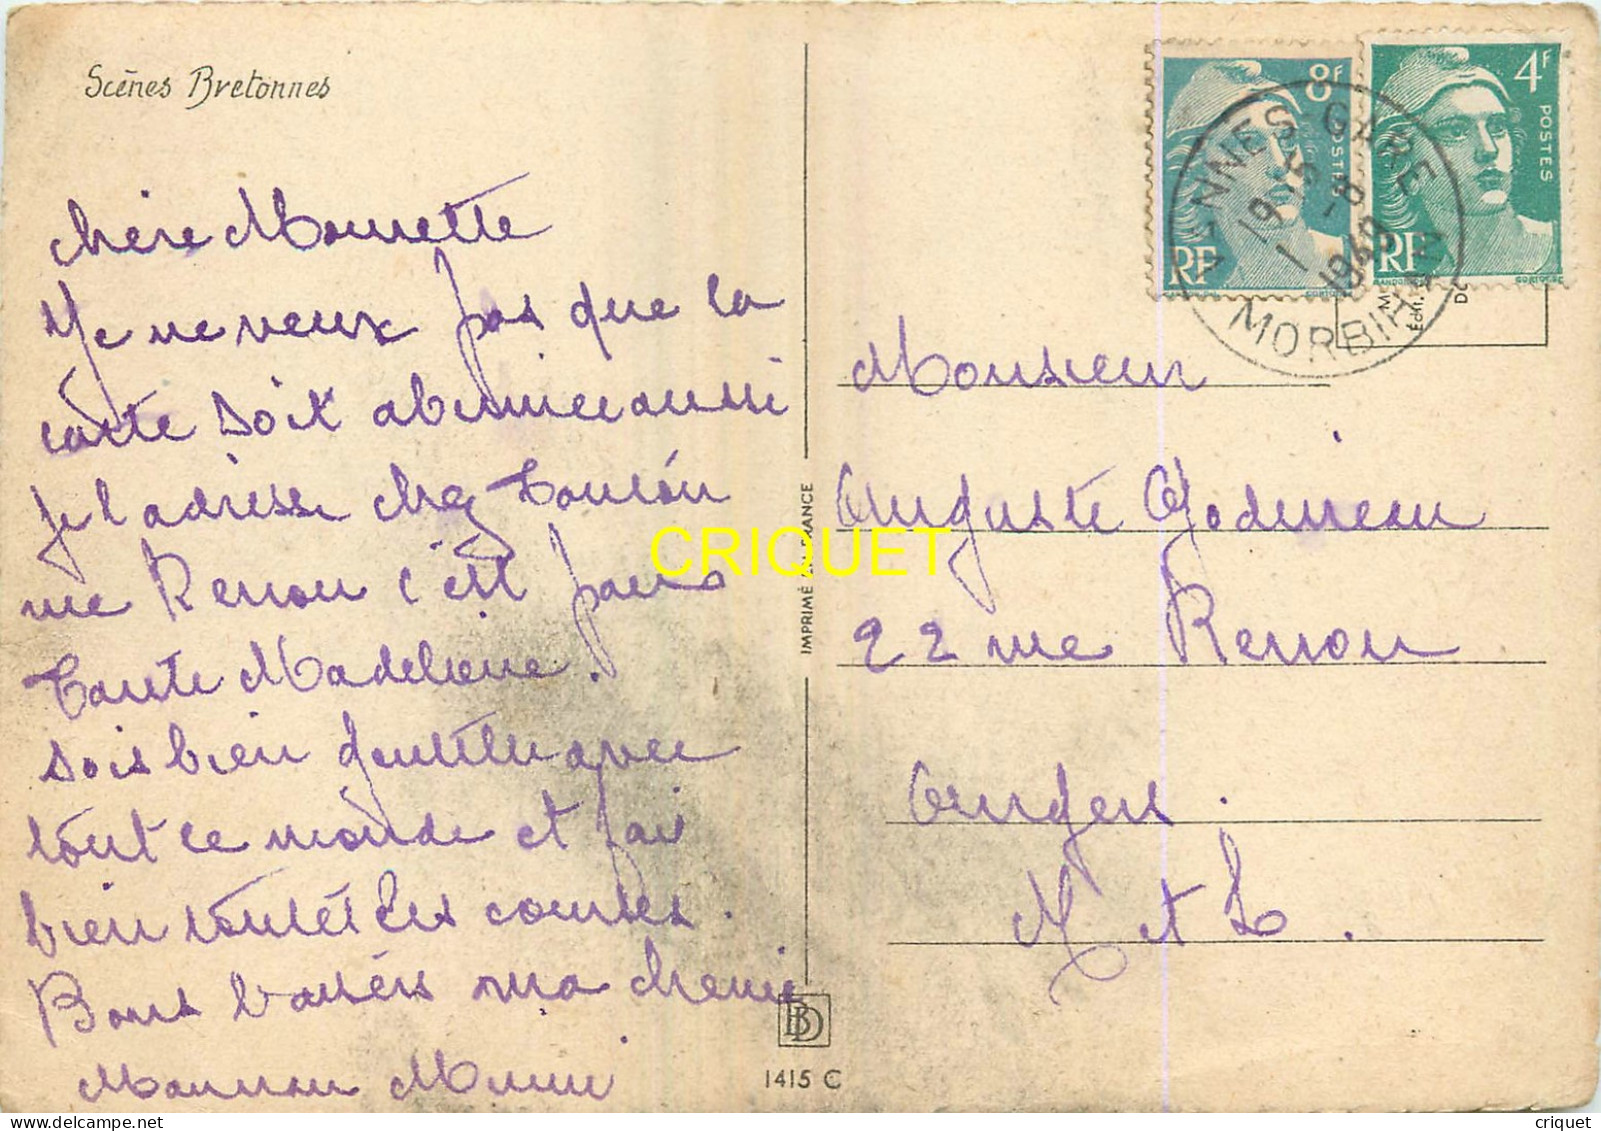 Scènes Bretonnes
chère Mounette
Je ne veux pas que la
carte soit abimée aussi
je l'adresse chez Tonton
rue Renou c'est pour
Tante Madeleine.
sois bien gentille avec
tout le monde et fais
bien toutes les courses.
Bons baisers ma chérie
Maman Mimi
IMPRIMÉ EN FRANCE
BD
1415 C
8F
POSTES
RF
4F
POSTES
RF
VANNES-GARE
19 H 15
1 - 8
1949
MORBIHAN
Monsieur
Auguste Godineau
22 rue Renou
Angers.
M et L.
CRIQUET
criquet